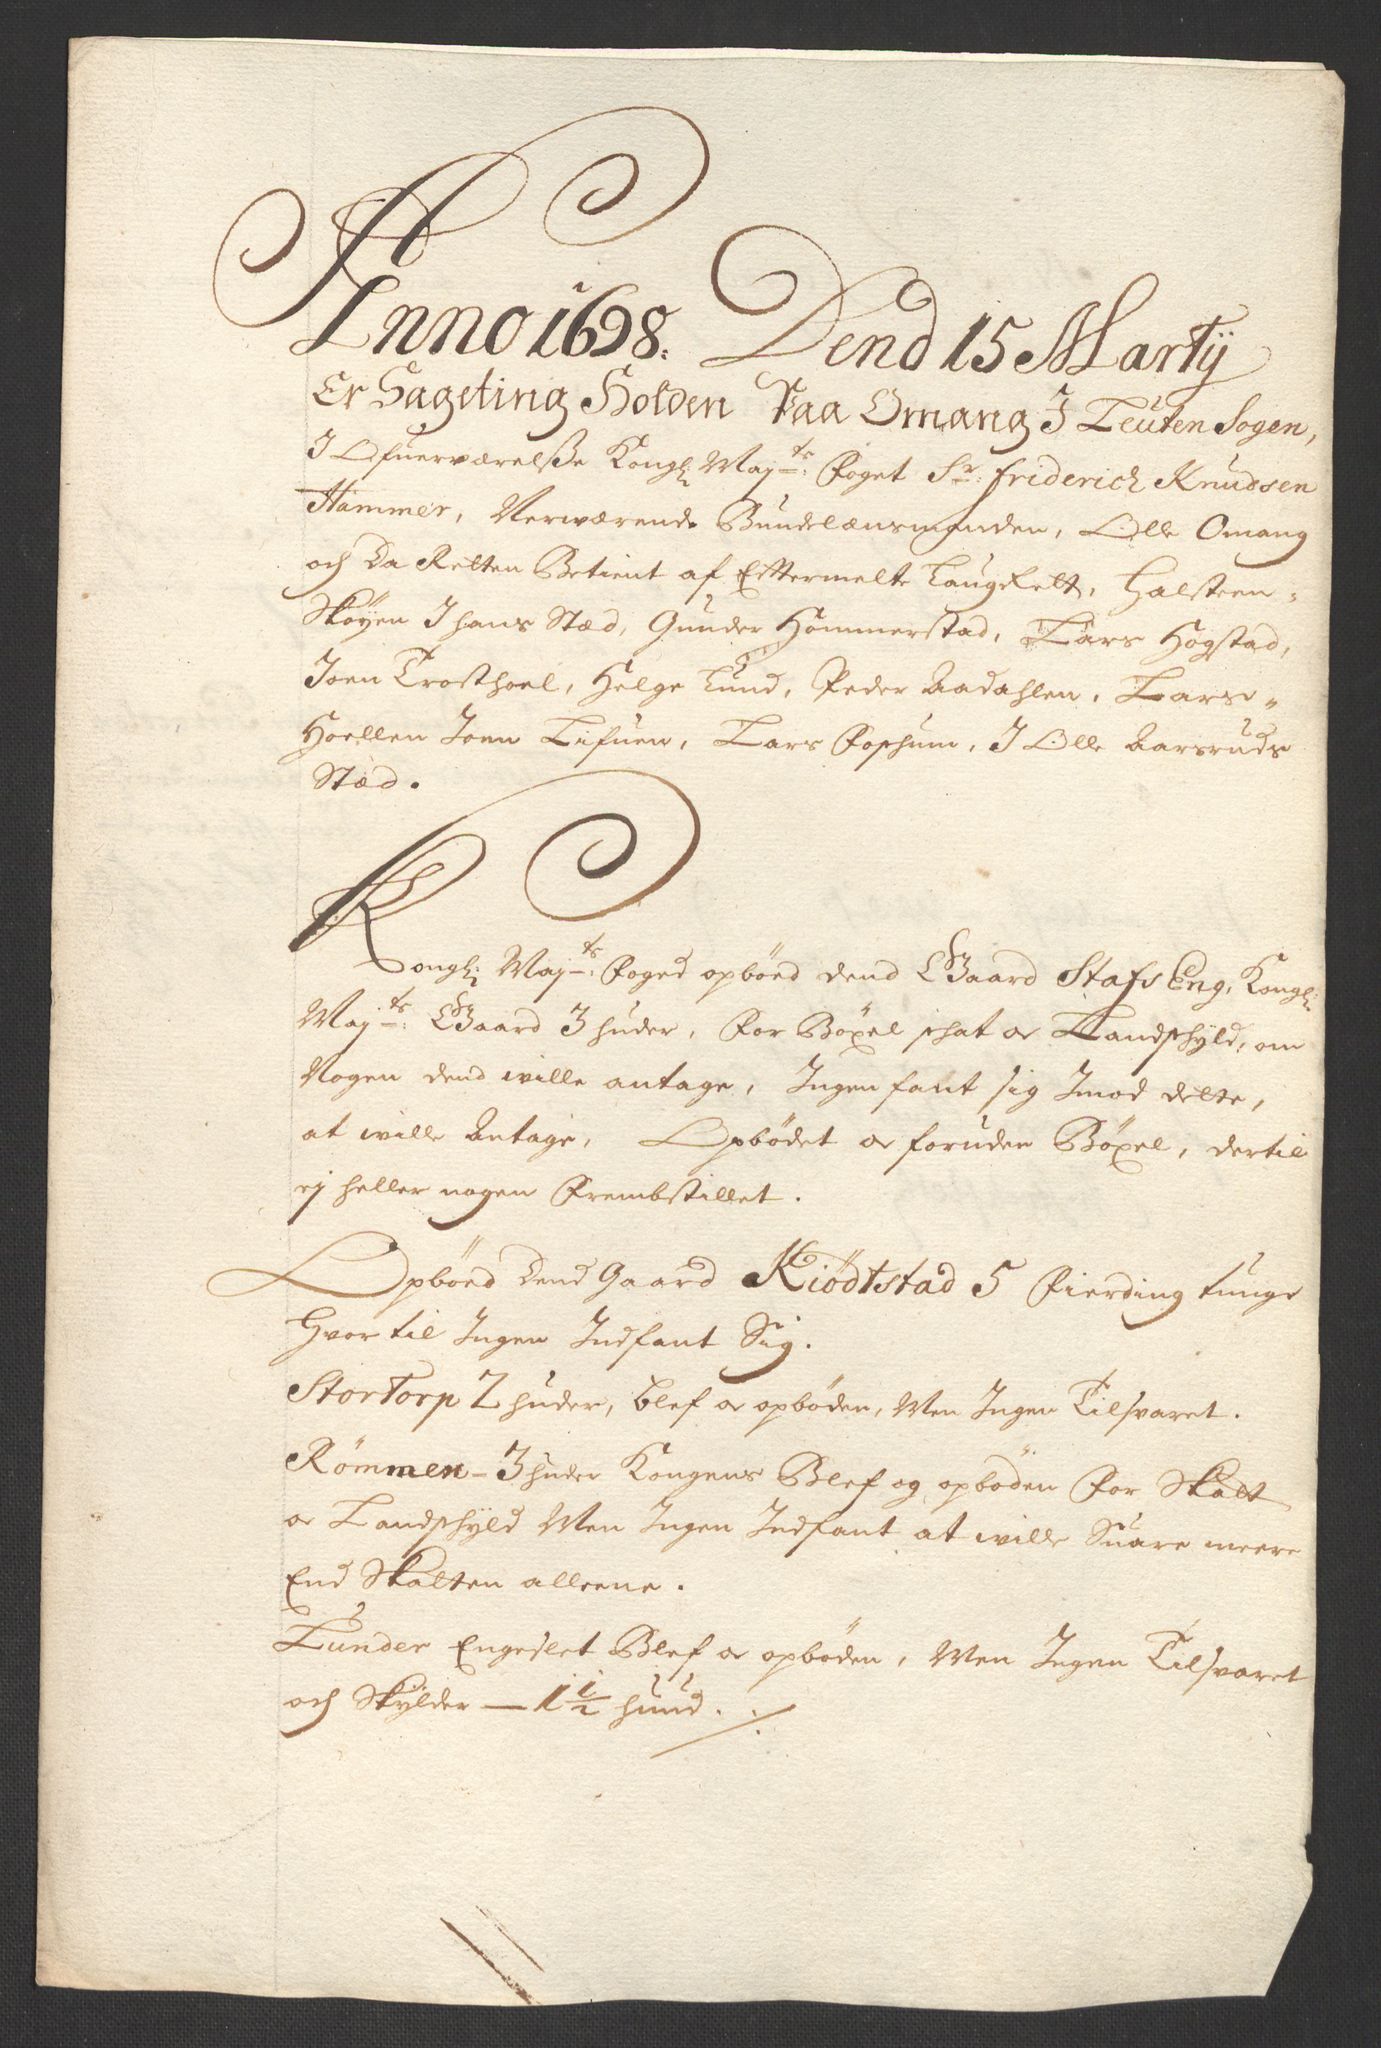 Anno 1698. Dend 15 Martÿ
Er Sageting Holden Paa Omang I Leuten Sogen,
I Ofuerværelsße Kongl: Maj:ts Foget Sr: Friderich Knudsen
Hammer, Nerwærende Bundelænsmanden, Olle Omang
och Da Retten Betient af Efftermelte Laugrett, Halsteen
Skøyen I hans Stæd, Gunder Hommerstad, Lars Hogstad,
Joen Trosthoel, Helge Lund, Peder Aadahlen, Lars
Hoellen Joen Lifuen, Lars Foshum, I Olle Aarsruds
Stæd.
Kongl: Maj:ts Foged opböed dend Gaard Stafs Eng, Kongl:
Maj:ts: Gaard 3 huder, For Böxel schat oc Landschÿld, om
Nogen dend wille antage, Ingen fant sig Imod dette,
at wille Antage, Opbödet oc foruden Böxel, dertil
ej heller nogen Frembstillet.
Opböed Dend Gaard Kiödtstad 5 Fierding tunge
Hvortil Ingen Indfant Sig.
StorTorp 2 huder, blef oc opböden, Men Ingen Tilsvaret.
Römmen - 3 huder Kongens Blef og opböden For Skatt
oc Landschÿld Men Ingen Indfant at wille Suare meere
End Skatten alleene.
Lunder Engeslet Blef oc opböden, Men Ingen Tilsvaret
och Skÿlder — 1 1/2 hund.